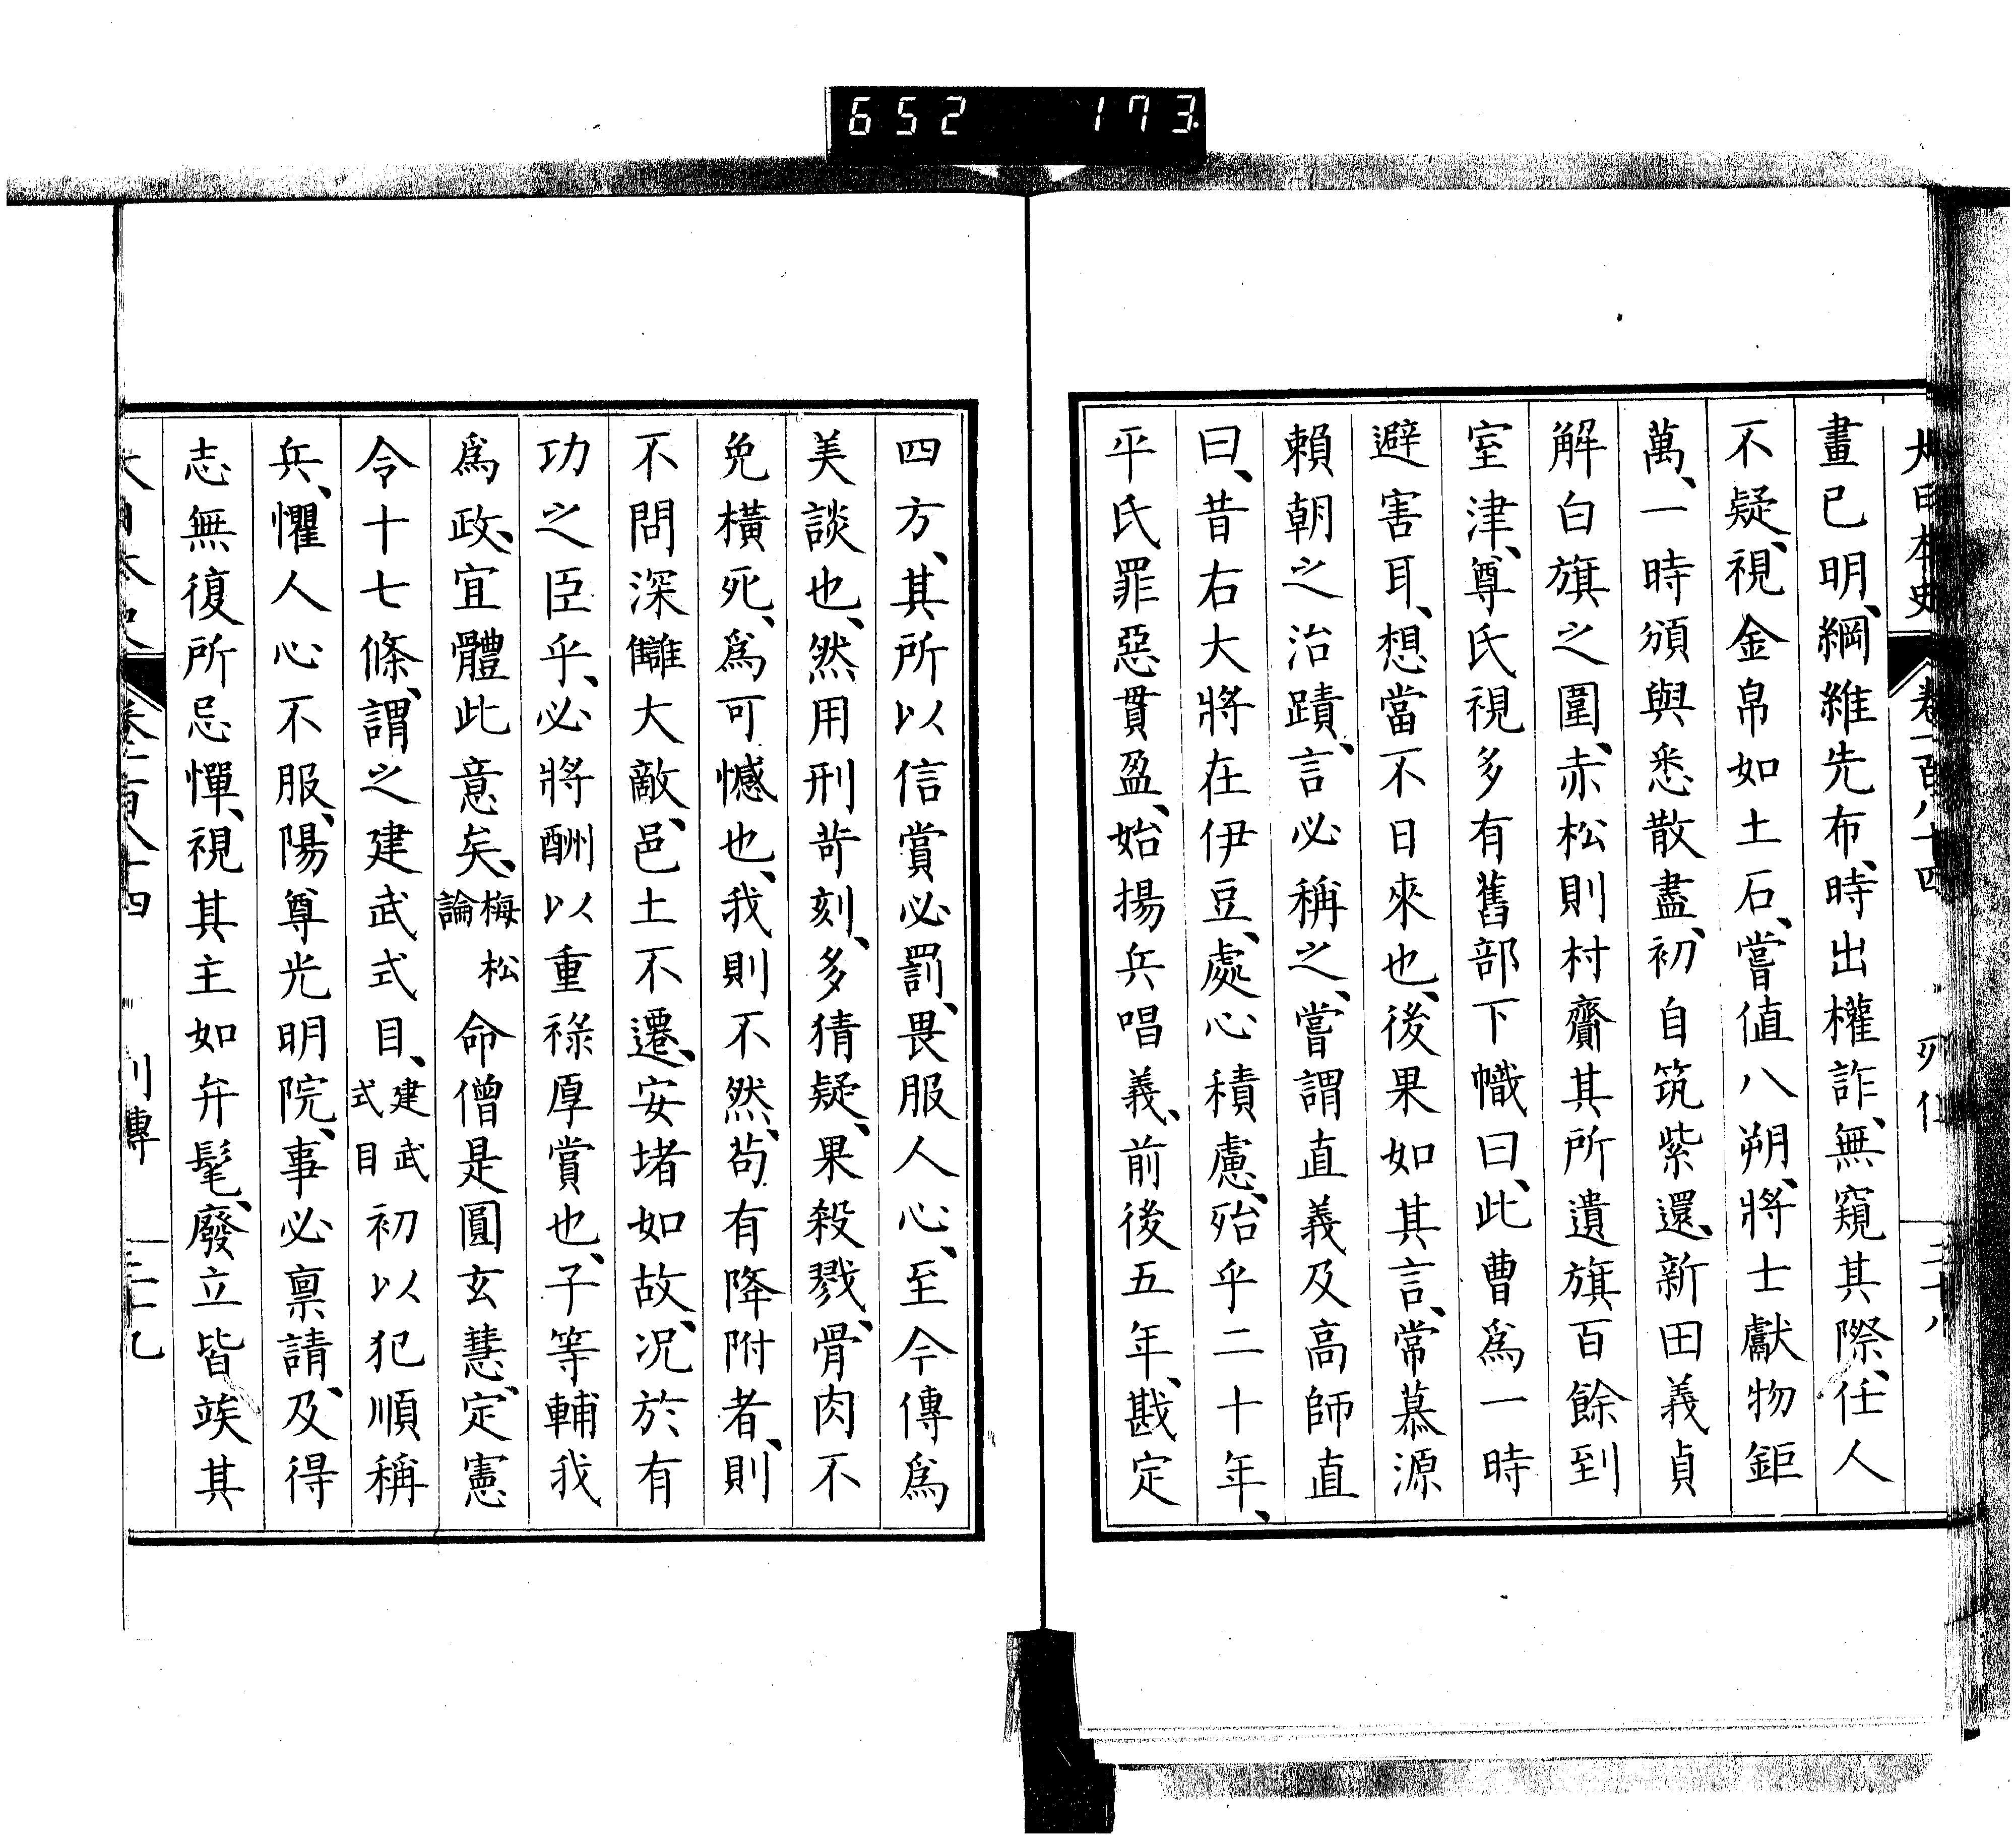 652 173
大日本史 卷一百八十四 列傳 三十八
畫已明、綱維先布、時出權詐、無窺其際、任人
不疑、視金帛如土石、嘗値八朔、將士獻物鉅
萬、一時頒與悉散盡、初自筑紫還、新田義貞
解白旗之圍、赤松則村齎其所遺旗百餘到
室津、尊氏視多有舊部下幟曰、此曹爲一時
避害耳、想當不日來也、後果如其言、常慕源
賴朝之治蹟、言必稱之、嘗謂直義及高師直
曰、昔右大將在伊豆、處心積慮、殆乎二十年、
平氏罪惡貫盈、始揚兵唱義、前後五年、戡定
四方、其所以信賞必罰、畏服人心、至今傳爲
美談也、然用刑苛刻、多猜疑、果殺戮、骨肉不
免橫死、爲可憾也、我則不然、苟有降附者、則
不問深讎大敵、邑土不遷、安堵如故、況於有
功之臣乎、必將酬以重祿厚賞也、子等輔我
爲政、宜體此意矣、梅松論命僧是圓玄慧、定憲
令十七條、謂之建武式目、建武式目初以犯順稱
兵、懼人心不服、陽尊光明院、事必稟請、及得
志無復所忌憚、視其主如弁髦、廢立皆竢其
大日本史 卷一百八十四 列傳 三十九